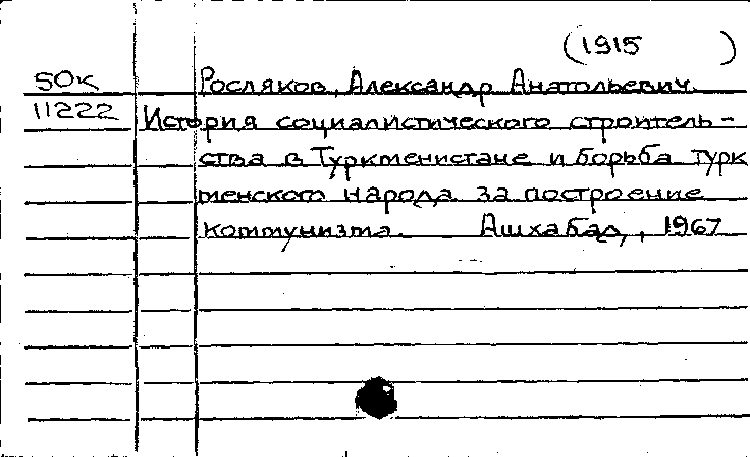 (1915 )
50к Росляков, Александр Анатольевич.
11222 История социалистического строитель-
ства в Туркменистане и борьба турк
менского народа за построение
коммунизма. Ашхабад, 1967